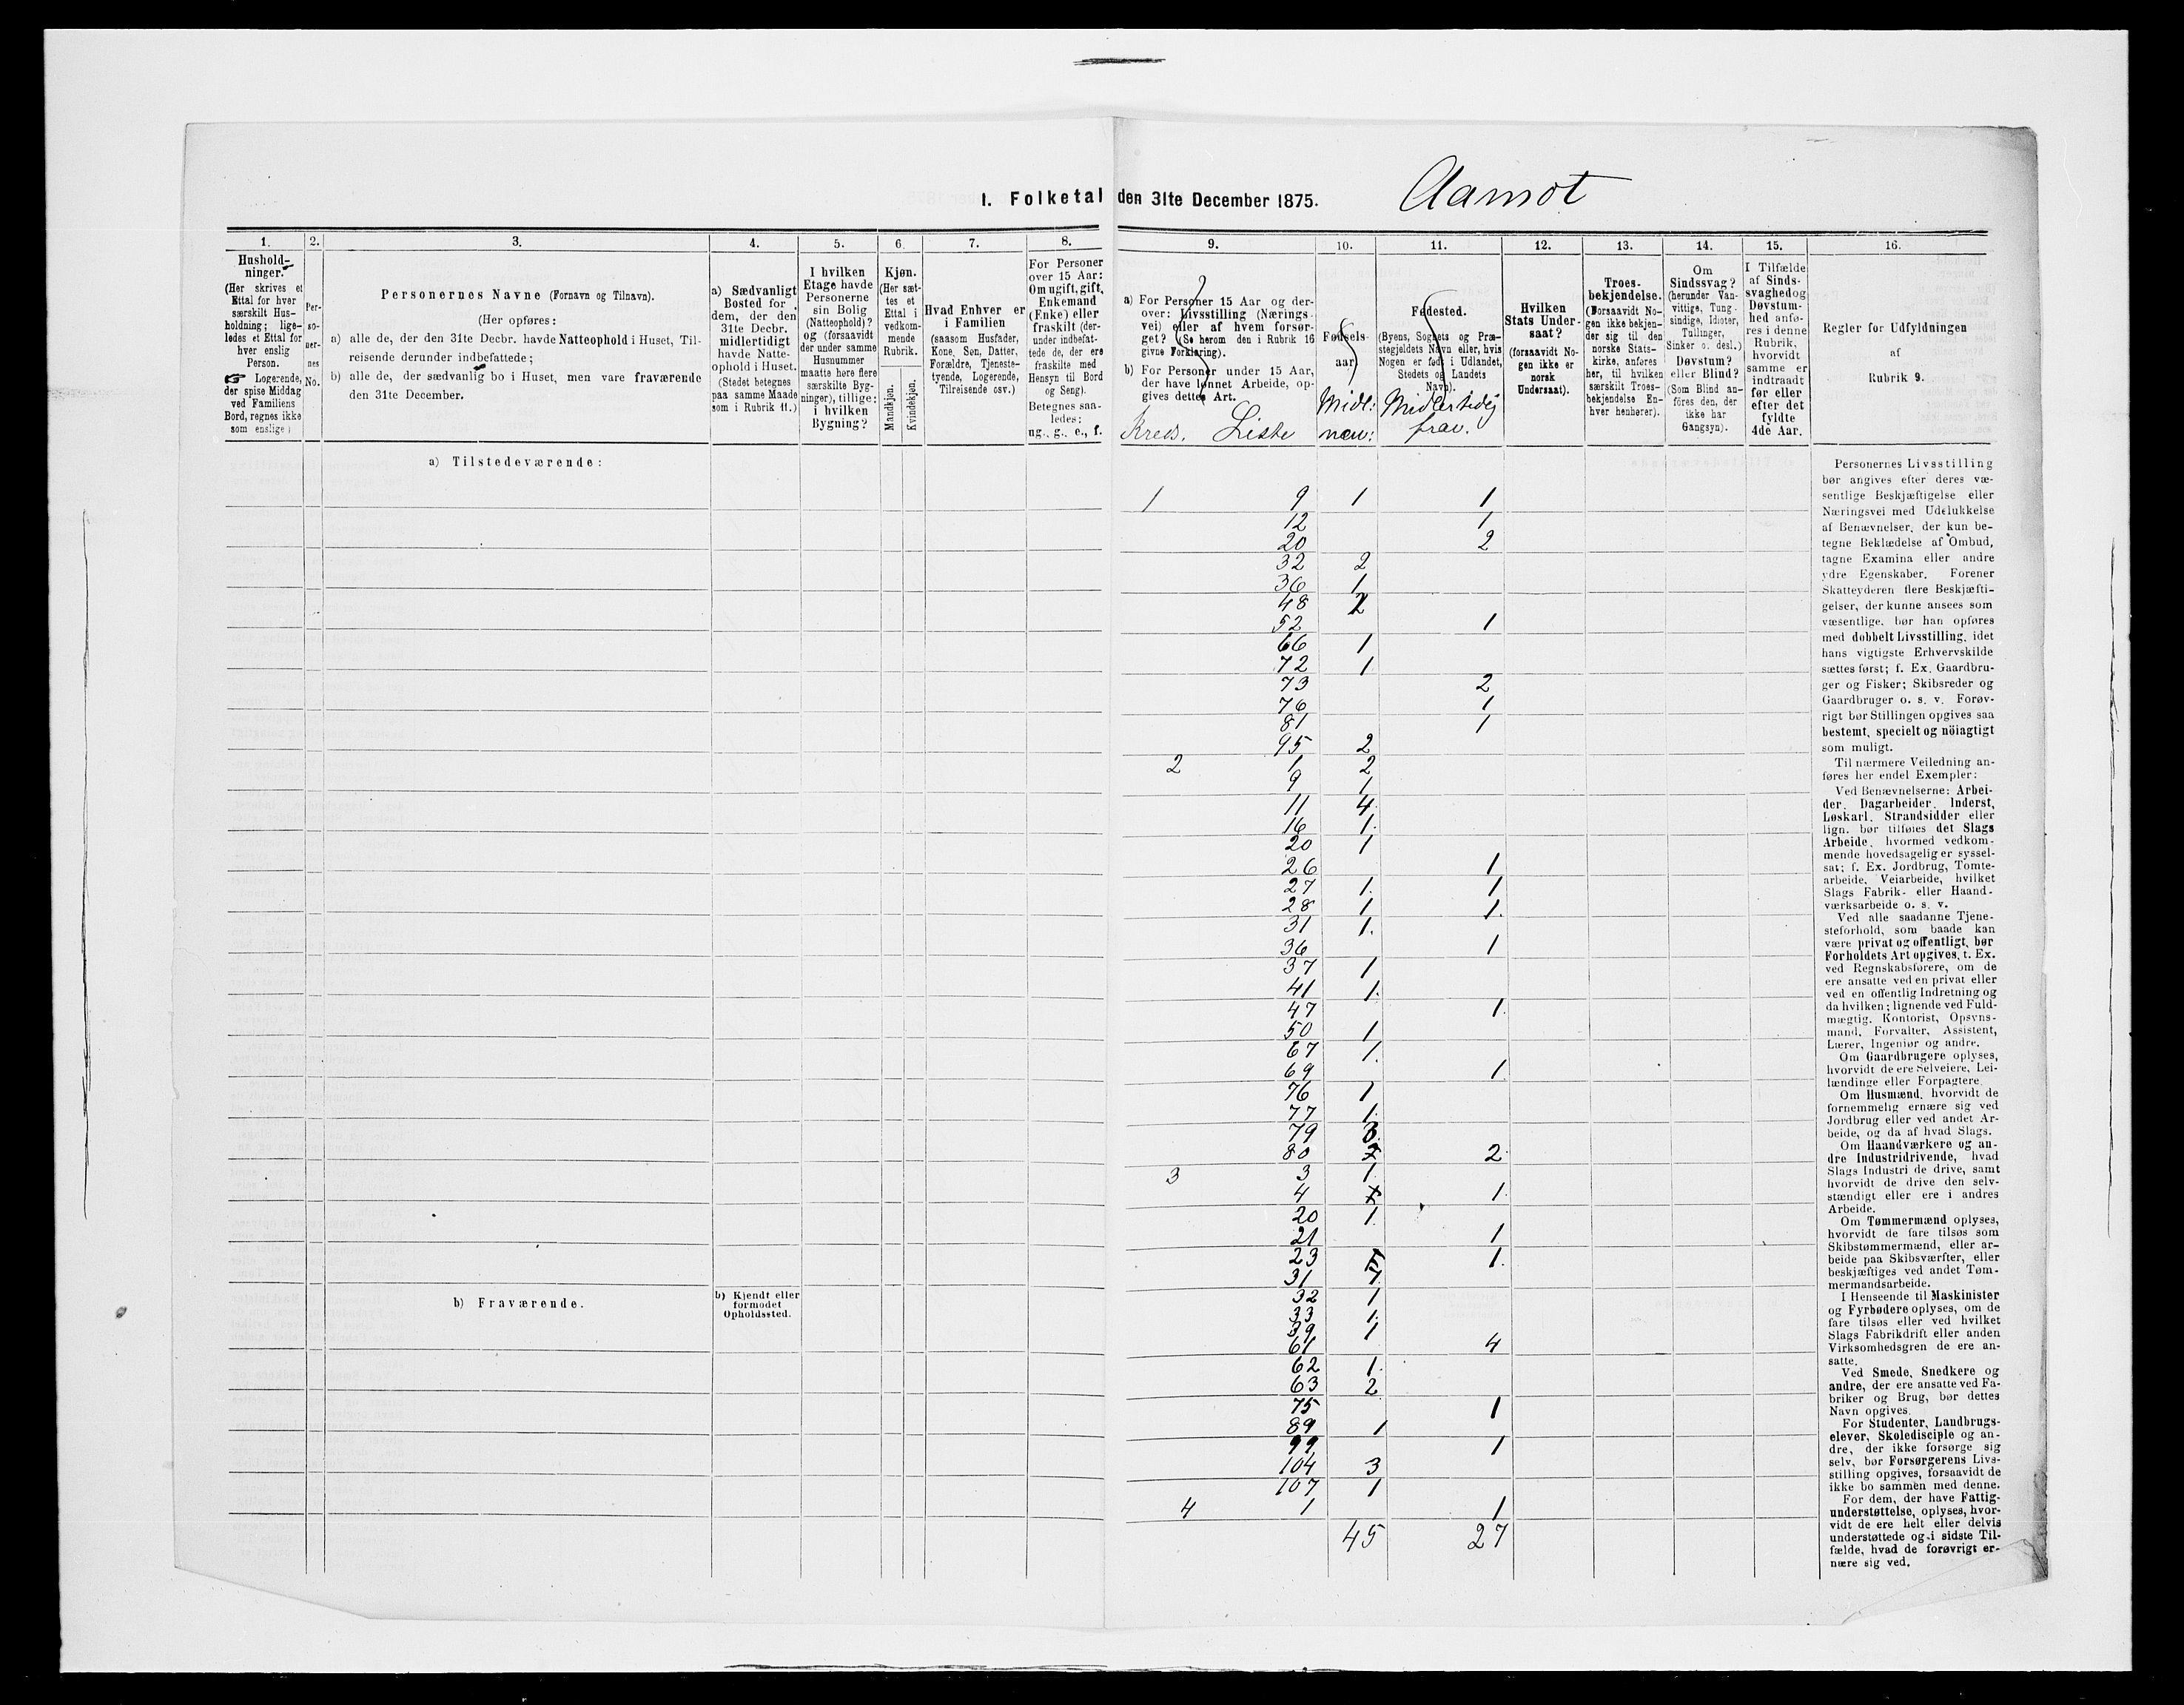 I. Folketal den 31te December 1875.
Aamot
1. 2. 3. 4. 5. 6. 7. 8. 9. 10. 11. 12. 13. 14. 15. 16.
Hushold-
ninger.
(Her skrives et
Ettal for hver
særskilt Hus-
holdning; lige-
ledes et Ettal for
hver enslig
Person.
☞ Logerende,
der spise Middag
ved Familiens
Bord, regnes ikke
som enslige)
Per-
so-
ner-
nes
No.
Personernes Navne (Fornavn og Tilnavn).
(Her opføres:
a) alle de, der den 31te Decbr. havde Natteophold i Huset, Til-
reisende derunder indbefattede;
b) alle de, der sædvanlig bo i Huset, men vare fraværende
den 31te December.
a) Sædvanligt
Bosted for
dem, der den
31te Decbr.
midlertidigt
havde Natte-
ophold i Huset.
(Stedet betegnes
paa samme Maade
som i Rubrik 11.)
I hvilken
Etage havde
Personerne
sin Bolig
(Natteophold)?
og (forsaavidt
der under samme
Husnummer
maatte høre flere
særskilte Byg-
ninger), tillige:
i hvilken
Bygning?
Kjøn.
(Her sæt-
tes et
Ettal i
vedkom-
mende
Rubrik.
Mandkjøn.
Kvindekjøn.
Hvad Enhver er
i Familien
(saasom Husfader,
Kone, Søn, Datter,
Forældre, Tjeneste-
tyende, Logerende,
Tilreisende osv.)
For Personer
over 15 Aar:
Om ugift, gift,
Enkemand
(Enke) eller
fraskilt (der-
under indbefat-
tede de, der ere
fraskilte med
Hensyn til Bord
og Seng).
Betegnes saa-
ledes:
ug., g., e., f.
a) For Personer 15 Aar og der-
over: Livsstilling (Nærings-
vei) eller af hvem forsør-
get? (Se herom den i Rubrik 16
givne Forklaring).
b) For Personer under 15 Aar,
der have lønnet Arbeide, op-
gives dettes Art.
Kreds. Liste
Fødsels-
aar.
Midl:
nær:
Fødested.
(Byens, Sognets og Præ-
stegjeldets Navn eller, hvis
Nogen er født i Udlandet,
Stedets og Landets
Navn).
Midlertidig
frav.
Hvilken
Stats Under-
saat?
(forsaavidt No-
gen ikke er
norsk
Undersaat).
Troes-
bekjendelse.
(Forsaavidt No-
gen ikke bekjen-
der sig til den
norske Stats-
kirke, anføres
her, til hvilken
særskilt Troes-
bekjendelse En-
hver henhører).
Om
Sindssvag?
(herunder Van-
vittige, Tung-
sindige, Idioter,
Tullinger,
Sinker o. desl.)
Døvstum?
eller Blind?
(Som Blind an-
føres den, der
ikke har
Gangsyn).
I Tilfælde
af Sinds-
svaghed og
Døvstum-
hed anfø-
res i denne
Rubrik,
hvorvidt
samme er
indtraadt
før eller
efter det
fyldte
4de Aar.
Regler for Udfyldningen
af
Rubrik 9.
a) Tilstedeværende:
1 9 1 1
12 1
20 2
32 2
36 1
48 2
52 1
66 1
72 1
73 2
76 1
81 1
95 2
2 1 2
9 1
11 4
16 1.
20 1
26 1
27 1. 1
28 1 1.
31 1.
36 1
37 1
41 1.
47 1.
50 1
67 1.
69 1.
76 1
77 1.
79 3.
80 2.
3 3 1.
4 1.
20 1.
21 1
23 1.
31
32 1
33 1.
39 1
61 4
62 1.
63 2
75 1
89 1
99 1
104 3
107 1
4 1 1
45 27
b) Fraværende.
b) Kjendt eller
formodet
Opholdssted.
Personernes Livsstilling
bør angives efter deres væ-
sentlige Beskjæftigelse eller
Næringsvei med Udelukkelse
af Benævnelser, der kun be-
tegne Beklædelse af Ombud,
tagne Examina eller andre
ydre Egenskaber. Forener
Skatteyderen flere Beskjæfti-
gelser, der kunne ansees som
væsentlige, bør han opføres
med dobbelt Livsstilling, idet
hans vigtigste Erhvervskilde
sættes først; f. Ex. Gaardbru-
ger og Fisker; Skibsreder og
Gaardbruger o. s. v. Forøv-
rigt bør Stillingen opgives saa
bestemt, specielt og nöiagtigt
som muligt.
Til nærmere Veiledning an-
føres her endel Exempler:
Ved Benævnelserne: Arbei-
der, Dagarbeider, Inderst,
Løskarl, Strandsidder eller
lign. bør tilføies det Slags
Arbeide, hvormed vedkom-
mende hovedsagelig er syssel-
sat; f. Ex. Jordbrug, Tomte-
arbeide, Veiarbeide, hvilket
Slags Fabrik- eller Haand-
værksarbeide o. s. v.
Ved alle saadanne Tjene-
steforhold, som baade kan
være privat og offentligt, bør
Forholdets Art opgives, t. Ex.
ved Regnskabsførere, om de
ere ansatte ved en privat eller
ved en offentlig Indretning og
da hvilken; lignende ved Fuld-
mægtig, Kontorist, Opsyns-
mand, Forvalter, Assistent,
Lærer, Ingeniør og andre.
Om Gaardbrugere oplyses,
hvorvidt de ere Selveiere, Lei-
lændinge eller Forpagtere.
Om Husmænd, hvorvidt de
fornemmelig ernære sig ved
Jordbrug eller ved andet Ar-
beide, og da af hvad Slags.
Om Haandværkere og an-
dre Industridrivende, hvad
Slags Industri de drive, samt
hvorvidt de drive den selv-
stændigt eller ere i andres
Arbeide.
Om Tømmermænd oplyses,
hvorvidt de fare tilsøs som
Skibstømmermænd, eller ar-
beide paa Skibsværfter, eller
beskjæftiges ved andet Tøm-
mermandsarbeide.
I Henseende til Maskinister
og Fyrbødere oplyses, om de
fare tilsøs eller ved hvilket
Slags Fabrikdrift eller anden
Virksomhedsgren de ere an-
satte.
Ved Smede, Snedkere og
andre, der ere ansatte ved Fa-
briker og Brug, bør dettes
Navn opgives.
For Studenter, Landbrugs-
elever, Skoledisciple og an-
dre, der ikke forsørge sig
selv, bør Forsørgerens Livs-
stilling opgives, forsaavidt de
ikke bo sammen med denne.
For dem, der have Fattig-
understøttelse, oplyses, hvor-
vidt de ere helt eller delvis
understøttede og i sidste Til-
fælde, hvad de forøvrigt er-
nære sig ved.